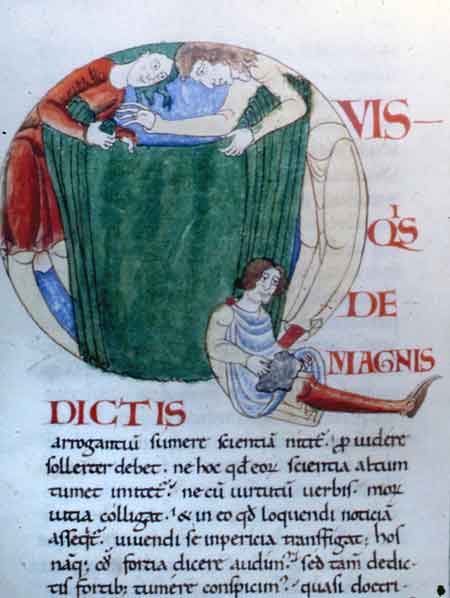 VIS-
QIS
DE
MAGNIS
DICTIS
arrogantiũ sumere scientiã nitit̃. ꝓ uidere
sollerter debet. ne hoc qđ eoꝝ scientia altum
tumet imitet̃. ne cũ uirtutũ uerbis. moꝝ
uitia colligat. & in eo qđ loquendi noticiã
assequit̃. uiuendi se inpericia transfigat. hos
nãq; cũ fortia dicere audim̃. sed tam̃ dedic-
tis fortib; tumere conspicim̃. quasi doctri-